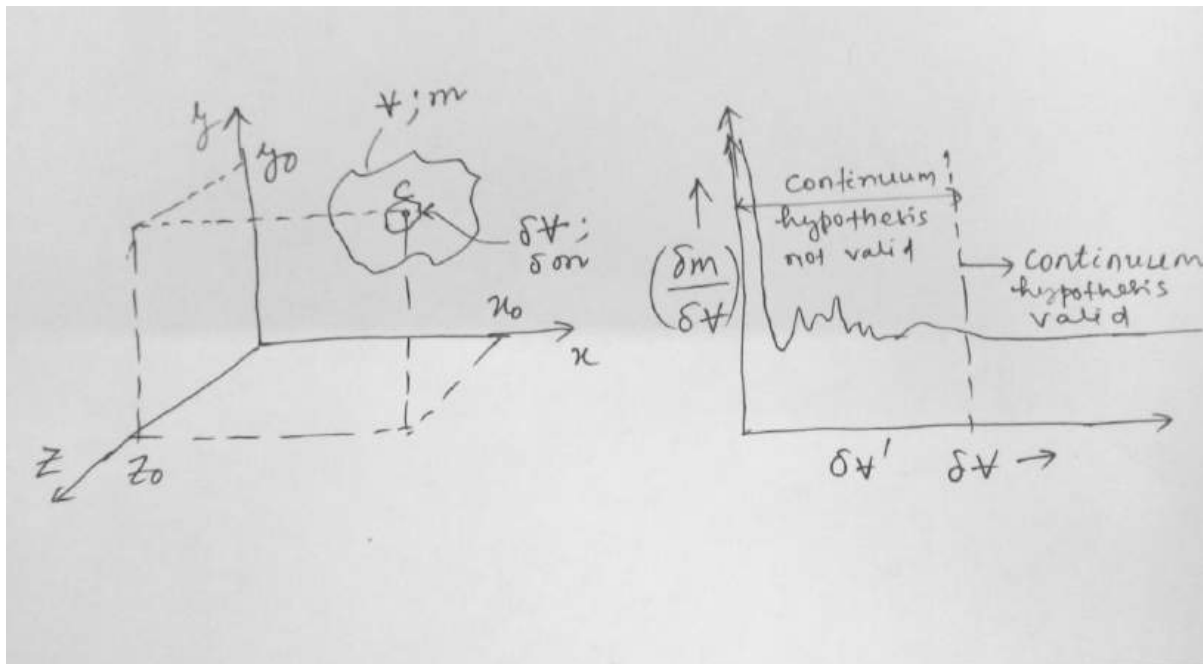 y
y₀
V̶;m
C
δV̶;
δm
x₀
x
Z
Z₀
(δm/δV̶)
continuum
hypothesis
not valid
continuum
hypothesis
valid
δV̶'
δV̶ →